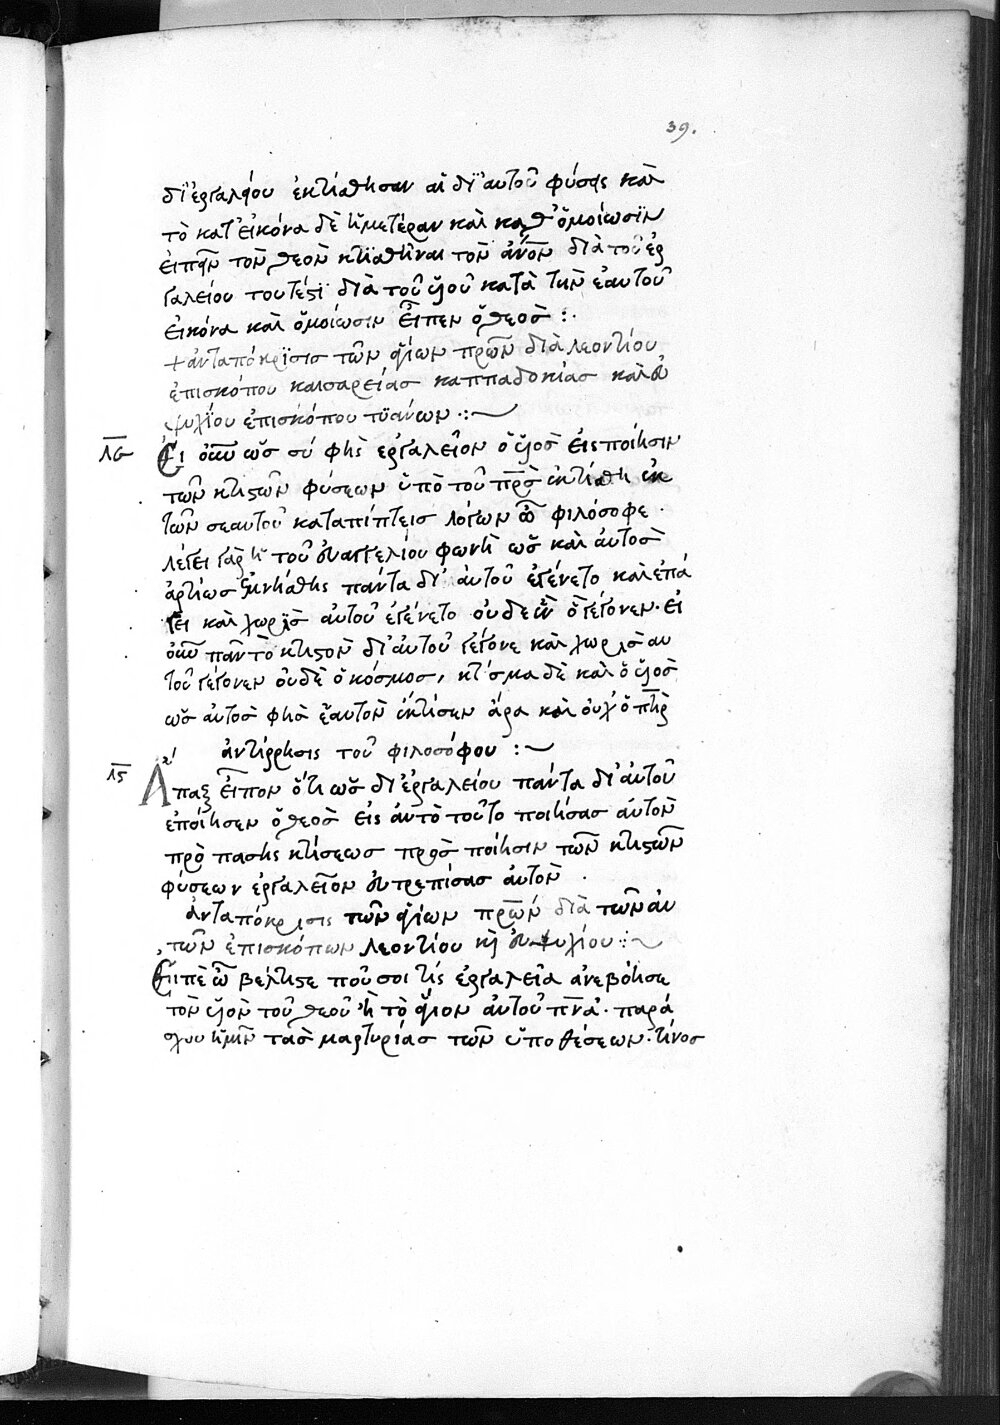 39.
δι' ἐργαλείου ἐκτίσθησαν αἱ δι' αὐτοῦ φύσεις καὶ
τὸ κατ' εἰκόνα δὲ ἡμετέραν καὶ καθ' ὁμοίωσιν
εἰπεῖν τὸν θεὸν κτισθῆναι τὸν ἄνον διὰ τοῦ ἐρ
γαλείου τουτέστι διὰ τοῦ υἱοῦ κατὰ τὴν ἑαυτοῦ
εἰκόνα καὶ ὁμοίωσιν εἶπεν ὁ θεὸς :.
+ ἀνταπόκρισις τῶν ἁγίων πρῶν διὰ λεοντίου
ἐπισκόπου καισαρείας καππαδοκίας καὶ εὐ
ψυχίου ἐπισκόπου τυάνων .:~
λε Εἰ οὖν ὡς σύ φῂς ἐργαλεῖον ὁ υἱὸς εἰς ποίησιν
τῶν κτιστῶν φύσεων ὑπὸ τοῦ πρς ἐκτίσθη ἐκ
τῶν σεαυτοῦ καταπίπτεις λόγων ὦ φιλόσοφε .
λέγει γὰρ ἡ τοῦ εὐαγγελίου φωνὴ ὡς καὶ αὐτὸς
ἀρτίως ἐμνήσθης πάντα δι' αὐτοῦ ἐγένετο καὶ ἐπά
γει καὶ χωρὶς αὐτοῦ ἐγένετο οὐδὲ ἓν ὃ γέγονεν. εἰ
οὖν πᾶν τὸ κτιστὸν δι' αὐτοῦ γέγονε καὶ χωρὶς αυ
τοῦ γέγονεν οὐδὲ ὁ κόσμος, κτίσμα δὲ καὶ ὁ υἱὸς
ὡς αὐτὸς φῂς ἑαυτὸν ἐκτίσεν ἄρα καὶ οὐχ' ὁ πηρ
ἀντίρρησις τοῦ φιλοσόφου :~
λς Ἅπαξ εἶπον ὅτι ὡς δι' ἐργαλείου πάντα δι' αὐτοῦ
ἐποίησεν ὁ θεὸς εἰς αὐτὸ τοῦτο ποιήσας αὐτὸν
πρὸ πάσης κτίσεως πρὸς ποίησιν τῶν κτιστῶν
φύσεων ἐργαλεῖον εὐτρεπίσας αὐτὸν .
ἀνταπόκρισις τῶν ἁγίων πρων διὰ τῶν αὐ
τῶν ἐπισκόπων λεοντίου κὶ εὐψυχίου :~
Εἰπὲ ὦ βέλτιστε ποῦ σοι τίς ἐργαλεῖα ἀνεβόησε
τὸν υἱὸν τοῦ θεοῦ ἢ τὸ ἅγιον αὐτοῦ πνα. παρά
σχου ἡμῖν τὰς μαρτυρίας τῶν ὑποθέσεων. τίνος